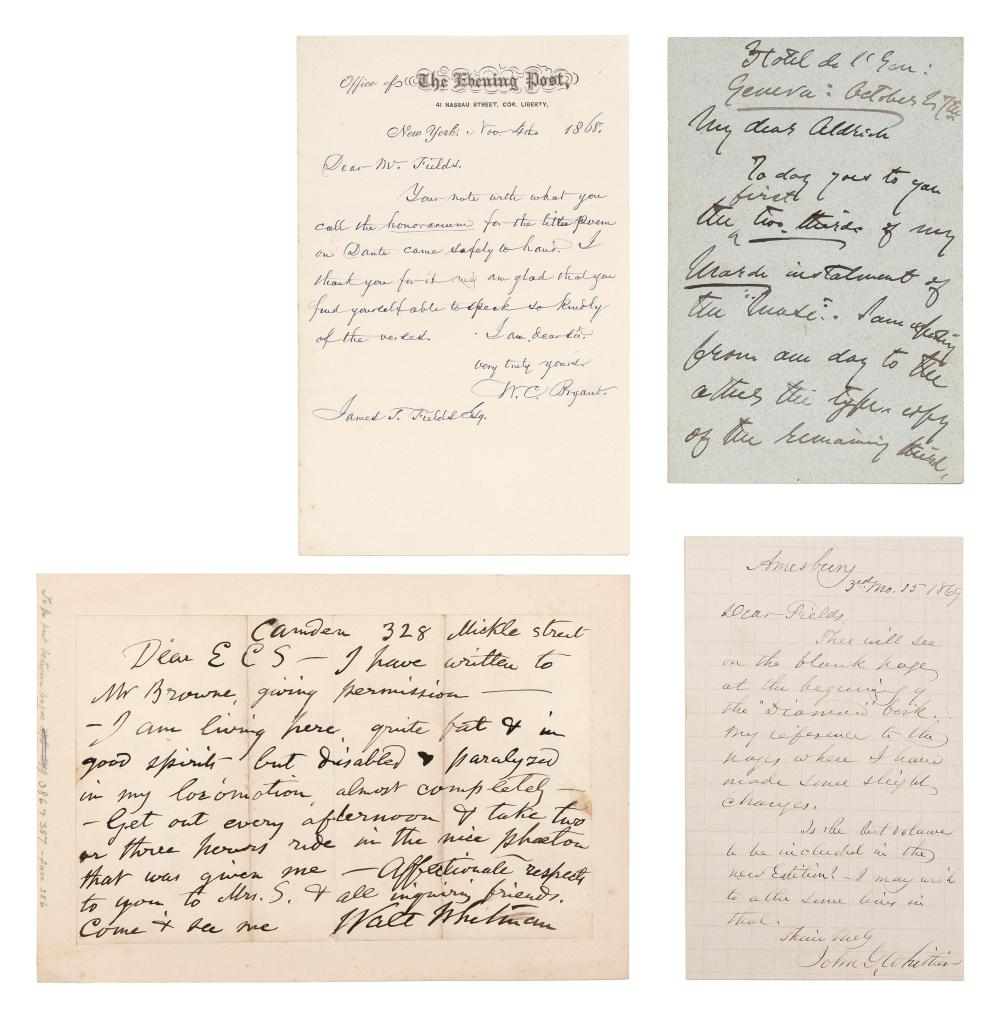 Office of The Evening Post,
41 NASSAU STREET, COR. LIBERTY,
New York, Nov. 4th 1868.
Dear Mr. Fields.
Your note with what you
call the honorarium for the little poem
on Dante came safely to hand. I
thank you for it and am glad that you
find yourself able to speak so kindly
of the verses. I am, dear sir.
very truly yours
W. C. Bryant.
James T. Fields Esq.
Hotel de l'Ecu:
Geneva: October
My dear Aldrich
To day goes to you
first
the two-thirds of my
March instalment of
the "Muse". I am expecting
from one day to the
other the type-copy
of the remaining third.
Camden 328 Mickle street
Dear E C S — I have written to
Mr Browne, giving permission —
– I am living here, quite fat & in
good spirits but disabled & paralyzed
in my locomotion, almost completely –
– Get out every afternoon & take two
or three hours ride in the nice phaeton
that was given me – Affectionate respects
to you to Mrs. S. & all inquiring friends.
Come & see me Walt Whitman
To be put between
386 & 387
Amesbury
3rd Mo. 15 1869
Dear Fields,
Thee will see
on the blank page
at the begenning of
the "Diamond" book.
my reference to the
pages where I have
made some slight
changes.
Is the last volume
to be included in the
new Edition? – I may wish
to alter some lines in
that.
Thine truly
John G. Whittier